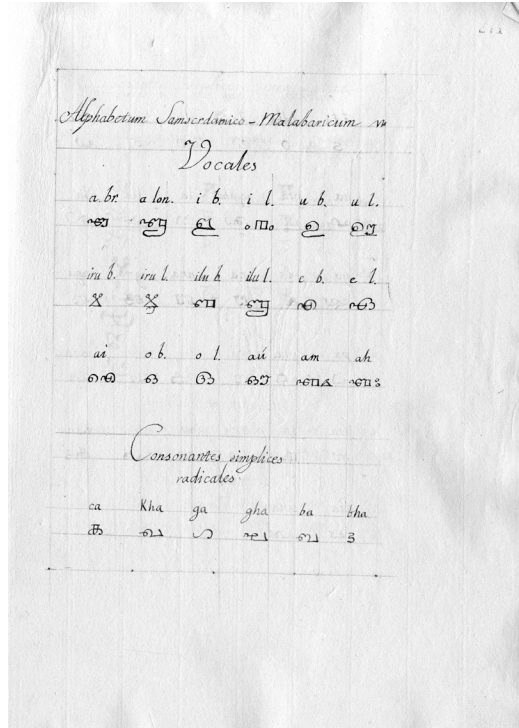 Alphabetum Samscrdamico-Malabaricum
Vocales
a br. a lon. i b. i l. u b. u l.
അ ആ ഇ ൟ ഉ ഊ
iru b. iru l. ilu b. ilu l. e b. e l.
ഌ ൡ എ ഏ
ai o b. o l. aú am ah
ഐ ഒ ഓ ഔ അം അഃ
Consonantes simplices
radicales
ca Kha ga gha ba tha
ക ഖ ഗ ഘ ബ ഠ